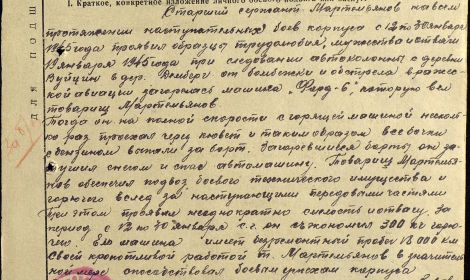 I. Краткое, конкретное изложение личного боевого
Старший сержант Мартемьянов на всем
протяжении наступательных боев корпуса с 12 по 30 января
1945 года проявил образцы трудолюбия, мужества и отваги
19 января 1945 года при следовании автоколонны с деревни
в дер. от бомбежки и обстрела вражес-
кой авиации загорелась машина „Форд-6", которую вел
товарищ Мартемьянов.
Тогда он на полной скорости с горящей машиной несколь-
ко раз проехал через кювет и таким образом все бочки
с бензином выпали за борт. Загоревшийся борты он за-
тушил снегом и спас автомашину. Товарищ Мартемья-
нов обеспечил подвоз боевого технического имущества и
горючего вслед за наступающими передовыми частями
При этом проявляя неоднократно смелость и отвагу. За
период с 12 по 30 января с.г. он съэкономил 300 кг горю-
чего. Его машина имеет безремонтный пробег 18 000 км
Своей кропотливой работой т. Мартемьянов в значитель-
ной мере способствовал боевым успехам корпуса
для подш